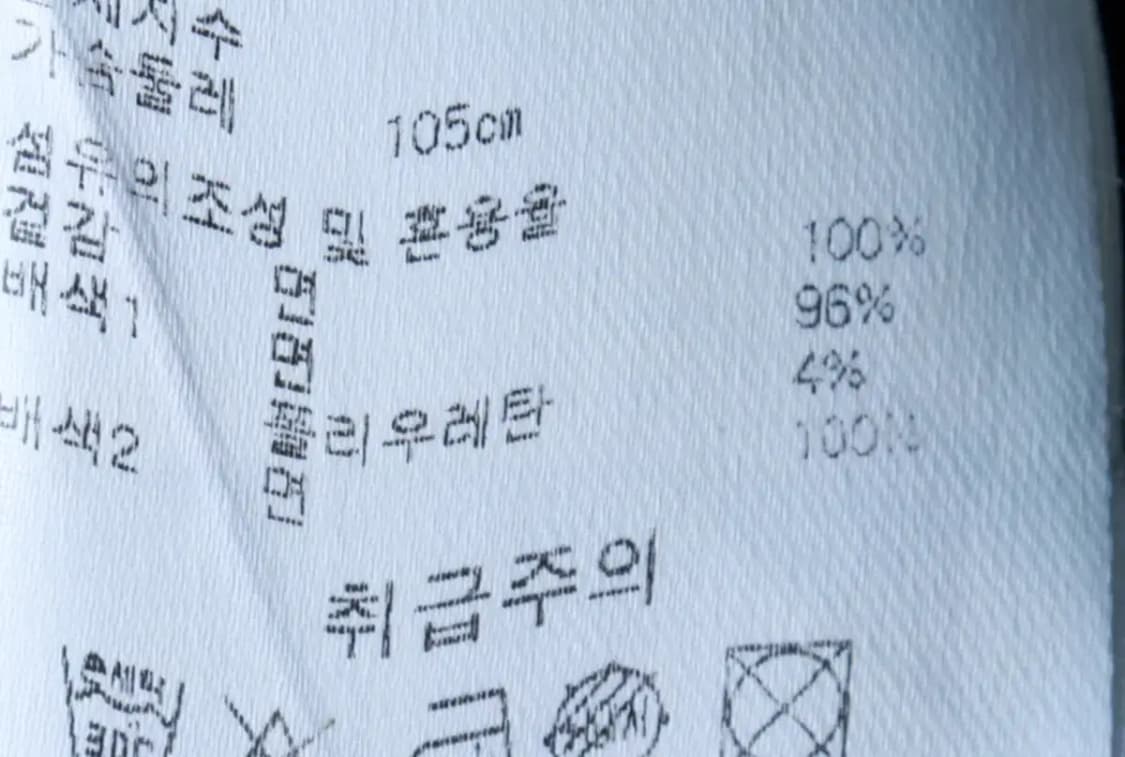 체치수
가슴둘레 105cm
섬유의조성 및 혼용율
겉감 면 100%
배색1 면 96%
폴리우레탄 4%
배색2 면 100%
취급주의
중세탁
30℃